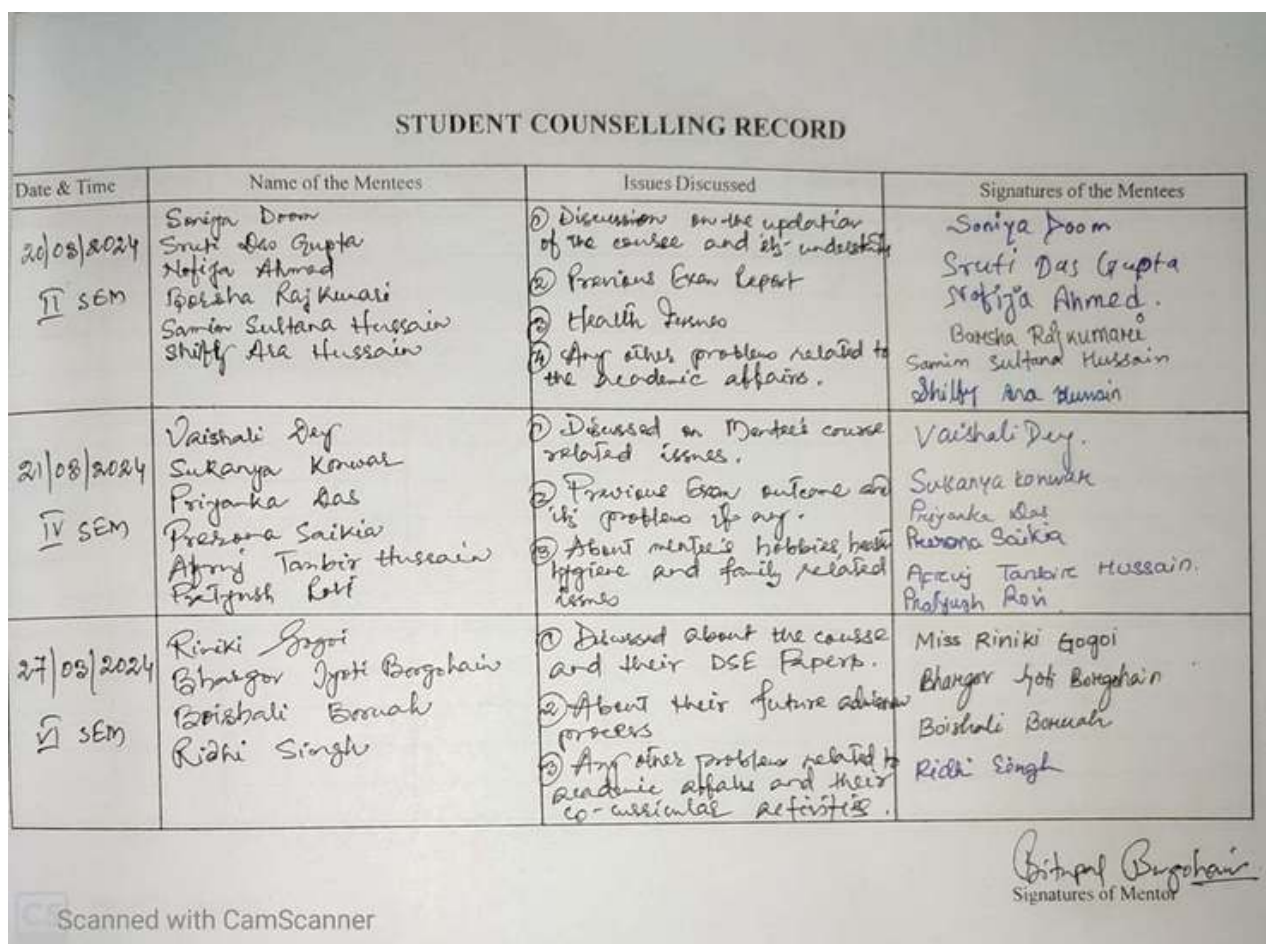 STUDENT COUNSELLING RECORD
Date & Time
Name of the Mentees
Issues Discussed
Signatures of the Mentees
20/03/2024
II SEM
Soniya Doom
Sruti Das Gupta
Nofija Ahmed
Borsha Rajkumari
Samim Sultana Hussain
Shilfy Ara Hussain
① Discussion on the updation
of the course and its understanding
② Previous Exam Report
③ Health Issues
④ Any other problem related to
the academic affairs.
Soniya Doom
Sruti Das Gupta
Nofija Ahmed.
Borsha Rajkumari
Samim Sultana Hussain
Shilfy Ara Hussain
21/03/2024
IV SEM
Vaishali Dey
Sukanya Konwar
Priyanka Das
Prerona Saikia
Tanbir Hussain
① Discussed on Mentee's course
related issues.
② Previous Exam outcome and
its problem if any.
③ About mentee's hobbies, health
hygiene and family related
issues
Vaishali Dey.
Sukanya Konwar
Priyanka Das
Prerona Saikia
Tanbir Hussain.
27/03/2024
VI SEM
Riniki Gogoi
Bhargov Jyoti Borgohain
Boishali Boruah
Ridhi Singh
① Discussed about the course
and their DSE Papers.
② About their future admission
process
③ Any other problem related to
academic affairs and their
co-curricular activities.
Miss Riniki Gogoi
Bhargov Jyoti Borgohain
Boishali Boruah
Ridhi Singh
Bitupal Borgohain
Signatures of Mentor
CS Scanned with CamScanner